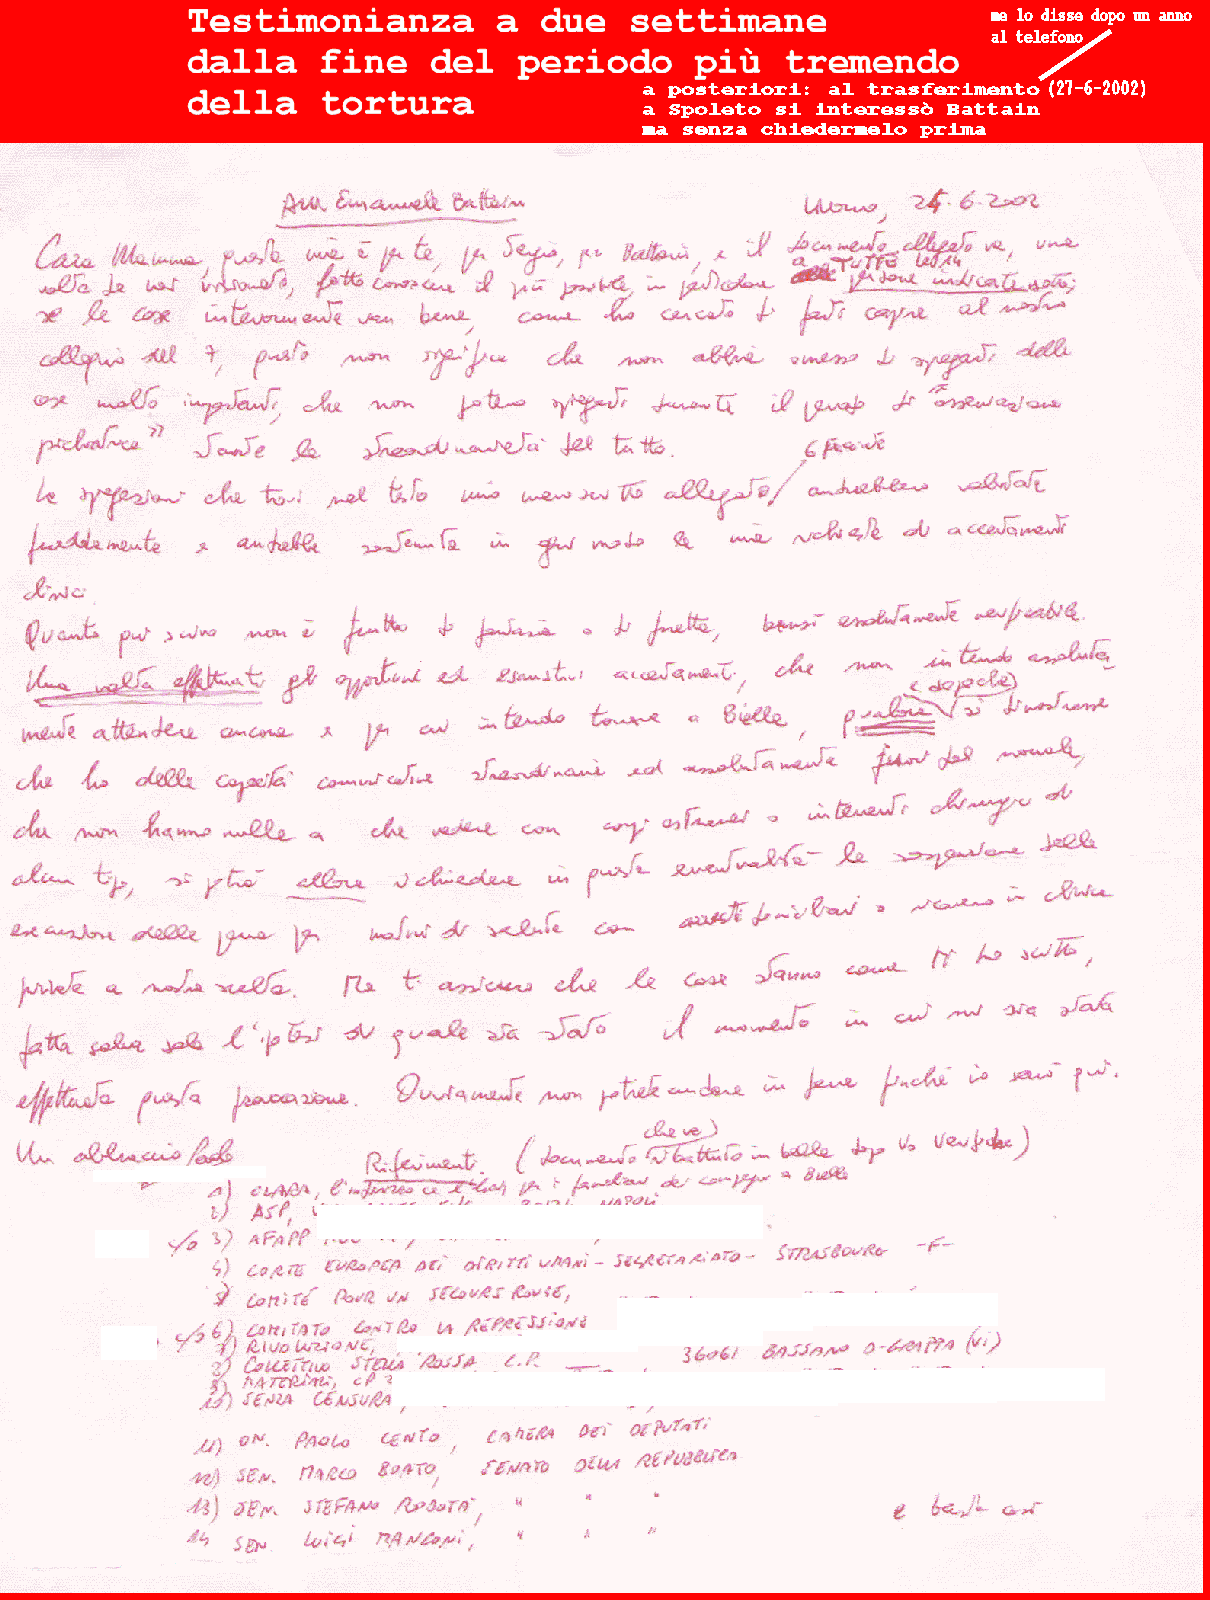 Testimonianza a due settimane
dalla fine del periodo più tremendo
della tortura
me lo disse dopo un anno
al telefono
a posteriori: al trasferimento (27-6-2002)
a Spoleto si interessò Battain
ma senza chiedermelo prima
Avv. Emanuele Battain
Livorno, 24.6.2002
Cara Mamma, questa mia è per te, per Sergio, per Battain, e il documento allegato va, una
volta da voi visionato, fatto conoscere il più possibile, in particolare a TUTTE le 14 persone indicate sotto;
se le cose interiormente van bene, come ho cercato di farti capire al nostro
colloquio del 7, questo non significa che non abbia omesso di spiegarti delle
cose molto importanti, che non potevo spiegarti durante il periodo di "osservazione
psichiatrica" stante la straordinarietà del tutto.
6 facciate
Le spiegazioni che trovi nel testo mio manoscritto allegato andrebbero valutate
freddamente e andrebbe sostenuta in ogni modo la mia richiesta di accertamenti
clinici.
Quanto qui scrivo non è frutto di fantasia o di fretta, bensì assolutamente verificabile.
Una volta effettuati gli opportuni ed esaustivi accertamenti, che non intendo assoluta
mente attendere ancora e per cui intendo tornare a Biella, qualora (e dopo che) si dimostrasse
che ho delle capacità comunicative straordinarie ed assolutamente fuori dal normale,
che non hanno nulla a che vedere con corpi estranei o interventi chirurgici di
alcun tipo, si potrà allora richiedere in questa eventualità la sospensione della
esecuzione della pena per motivi di salute con arresti domiciliari o ricovero in clinica
privata a nostra scelta. Ma ti assicuro che le cose stanno come ti ho scritto,
fatta salva solo l'ipotesi di quale sia stato il momento in cui mi sia stata
effettuata questa provocazione. Ovviamente non potrete andare in ferie finché io sarò qui.
Un abbraccio Paolo
Riferimenti. (documento che va ribattuto in bella dopo vs verifiche)
1) CLARA, l'indirizzo ce l'hai per i familiari dei compagni a Biella
2) ASP, NAPOLI
c/o 3) AFAPP
4) CORTE EUROPEA DEI DIRITTI UMANI - SEGRETARIATO - STRASBOURG -F-
5) COMITÉ POUR UN SECOURS ROUGE,
c/o 6) COMITATO CONTRO LA REPRESSIONE
7) RIVOLUZIONE,
8) COLLETTIVO STELLA ROSSA C.P. 36061 BASSANO D-GRAPPA (VI)
9) MATERIALI, CP
10) SENZA CENSURA,
11) ON. PAOLO CENTO, CAMERA DEI DEPUTATI
12) SEN. MARCO BOATO, SENATO DELLA REPUBBLICA
13) SEN. STEFANO RODOTA', " " "
14 SEN. LUIGI MANCONI, " " "
e basta così